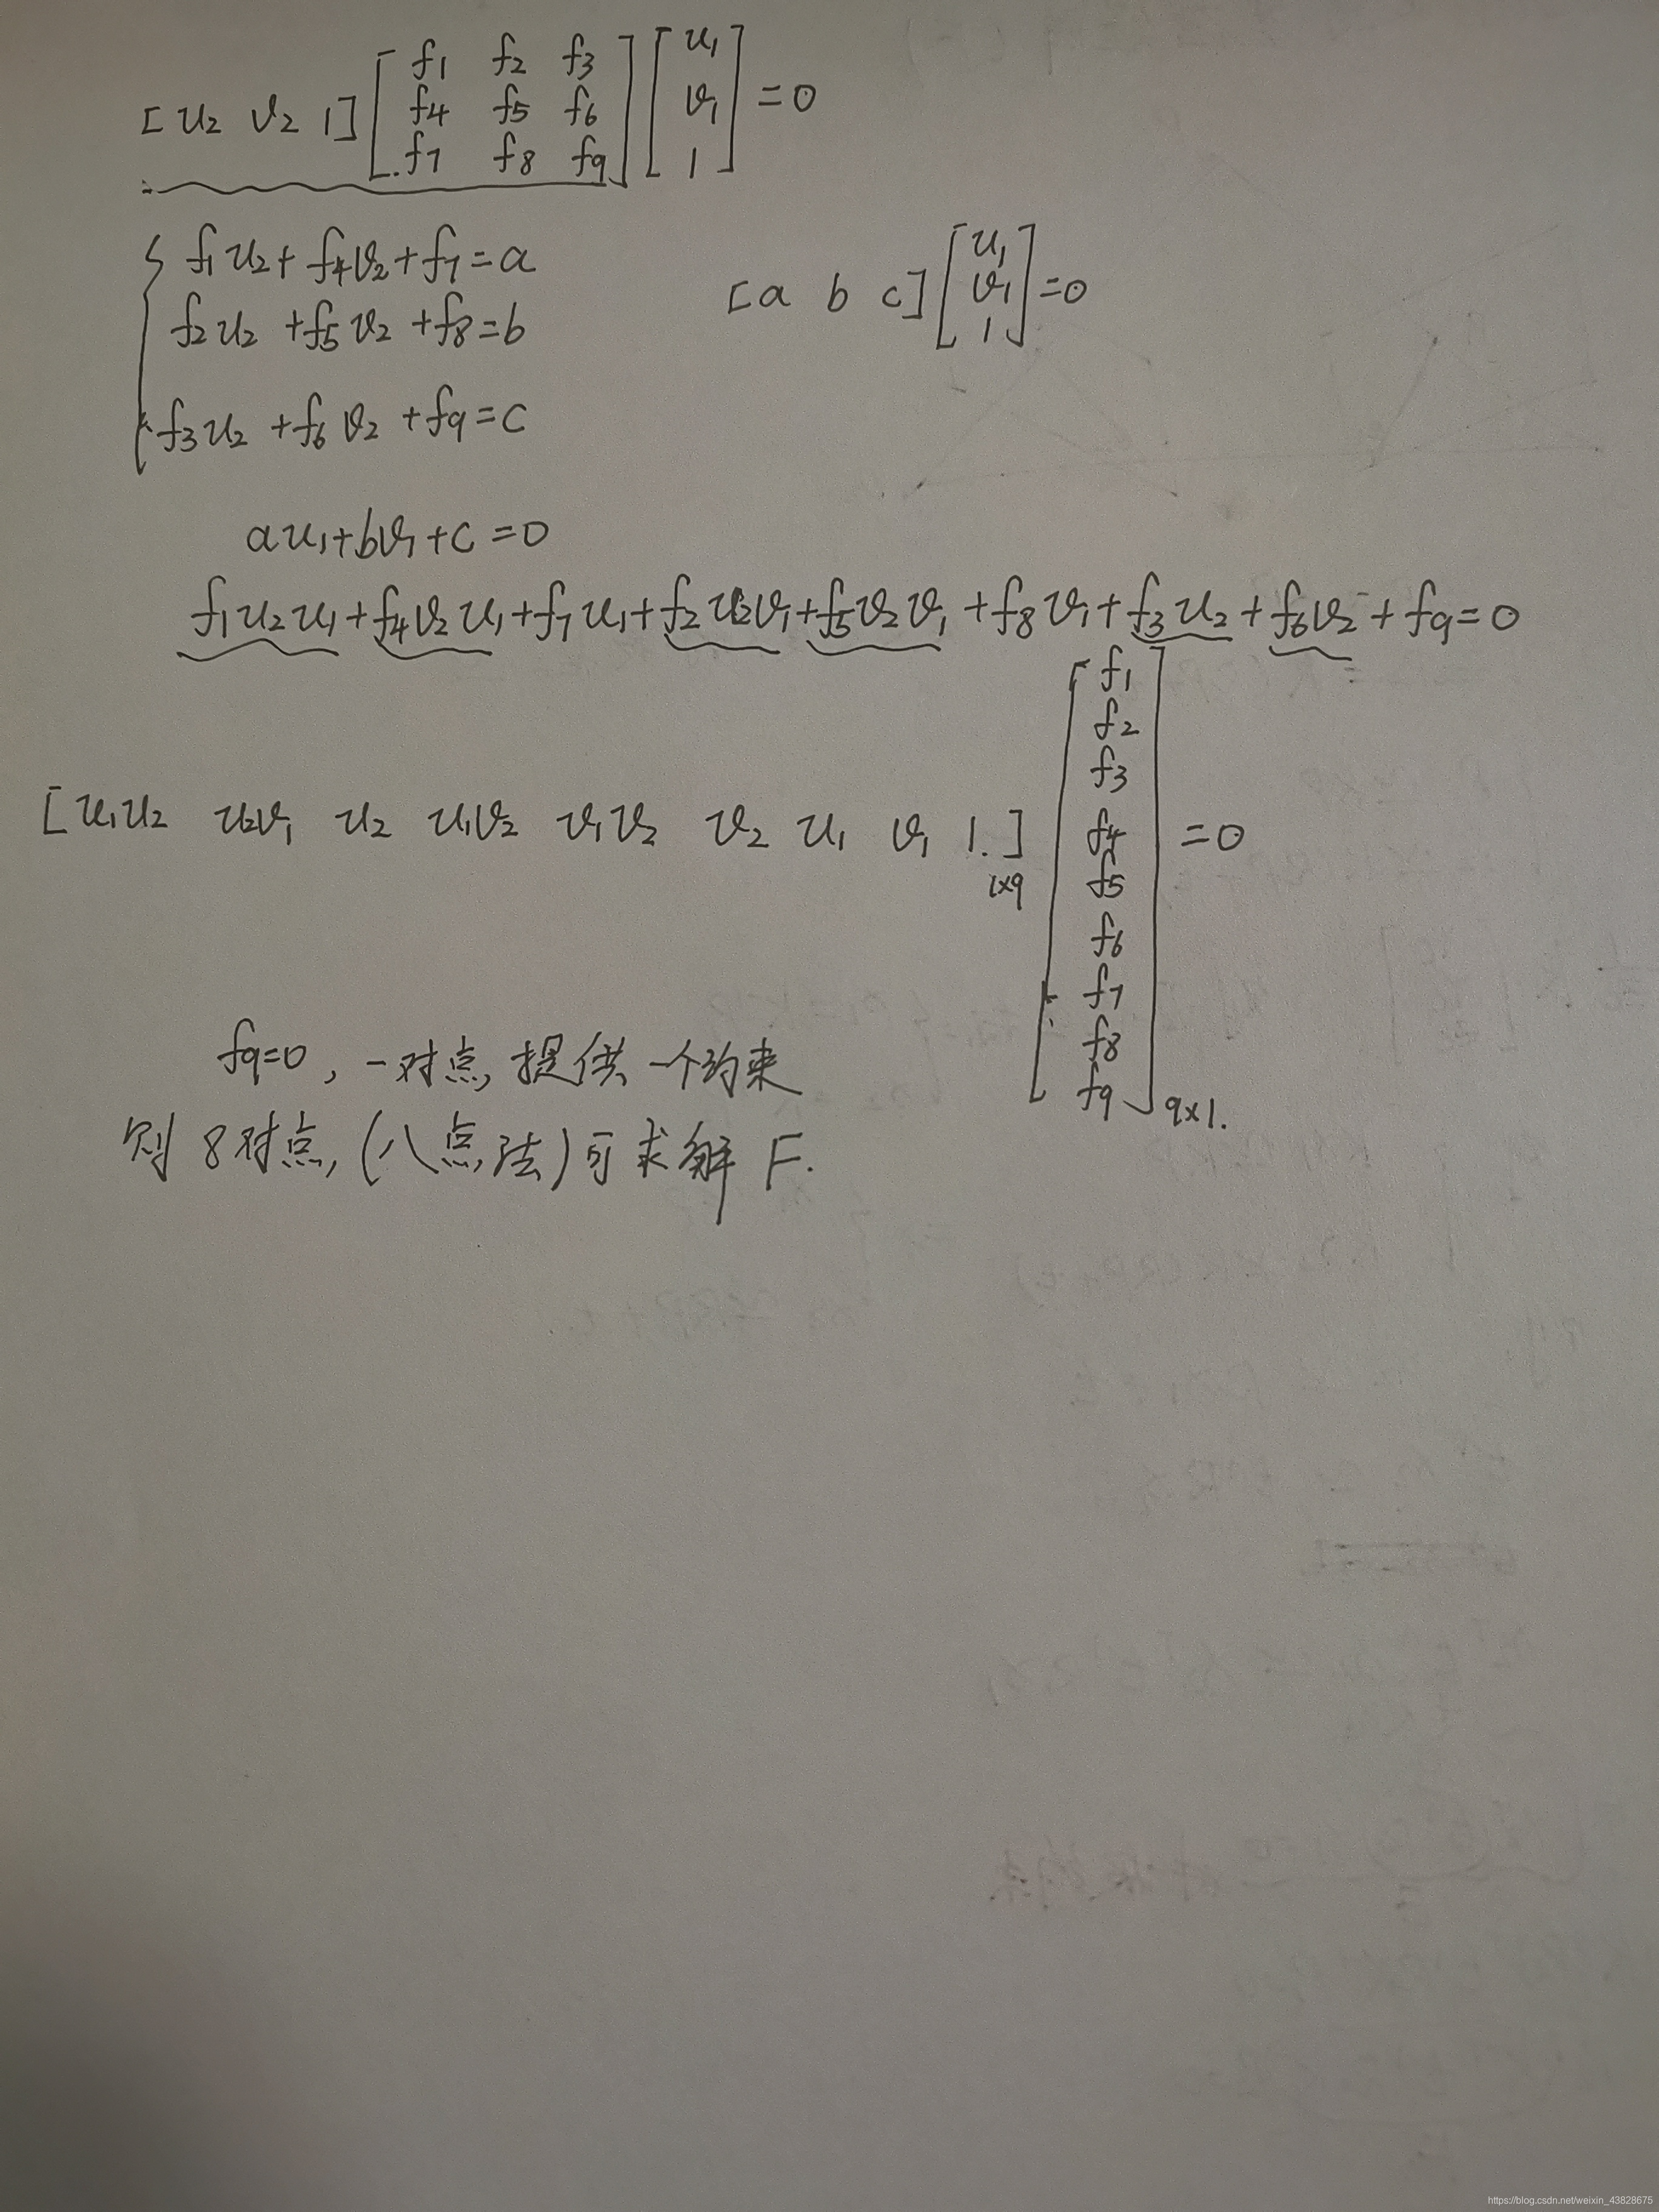 [u₂ v₂ 1] [f₁ f₂ f₃; f₄ f₅ f₆; f₇ f₈ f₉] [u₁; v₁; 1] = 0
f₁u₂ + f₄v₂ + f₇ = a
f₂u₂ + f₅v₂ + f₈ = b
f₃u₂ + f₆v₂ + f₉ = c
[a b c] [u₁; v₁; 1] = 0
au₁ + bv₁ + c = 0
f₁u₂u₁ + f₄v₂u₁ + f₇u₁ + f₂u₂v₁ + f₅v₂v₁ + f₈v₁ + f₃u₂ + f₆v₂ + f₉ = 0
[u₁u₂ u₂v₁ u₂ u₁v₂ v₁v₂ v₂ u₁ v₁ 1.]₁ₓ₉ [f₁; f₂; f₃; f₄; f₅; f₆; f₇; f₈; f₉]₉ₓ₁. = 0
f₉=0, 一对点, 提供一个约束
则 8对点, (八点法) 可求解 F.
https://blog.csdn.net/weixin_43828675